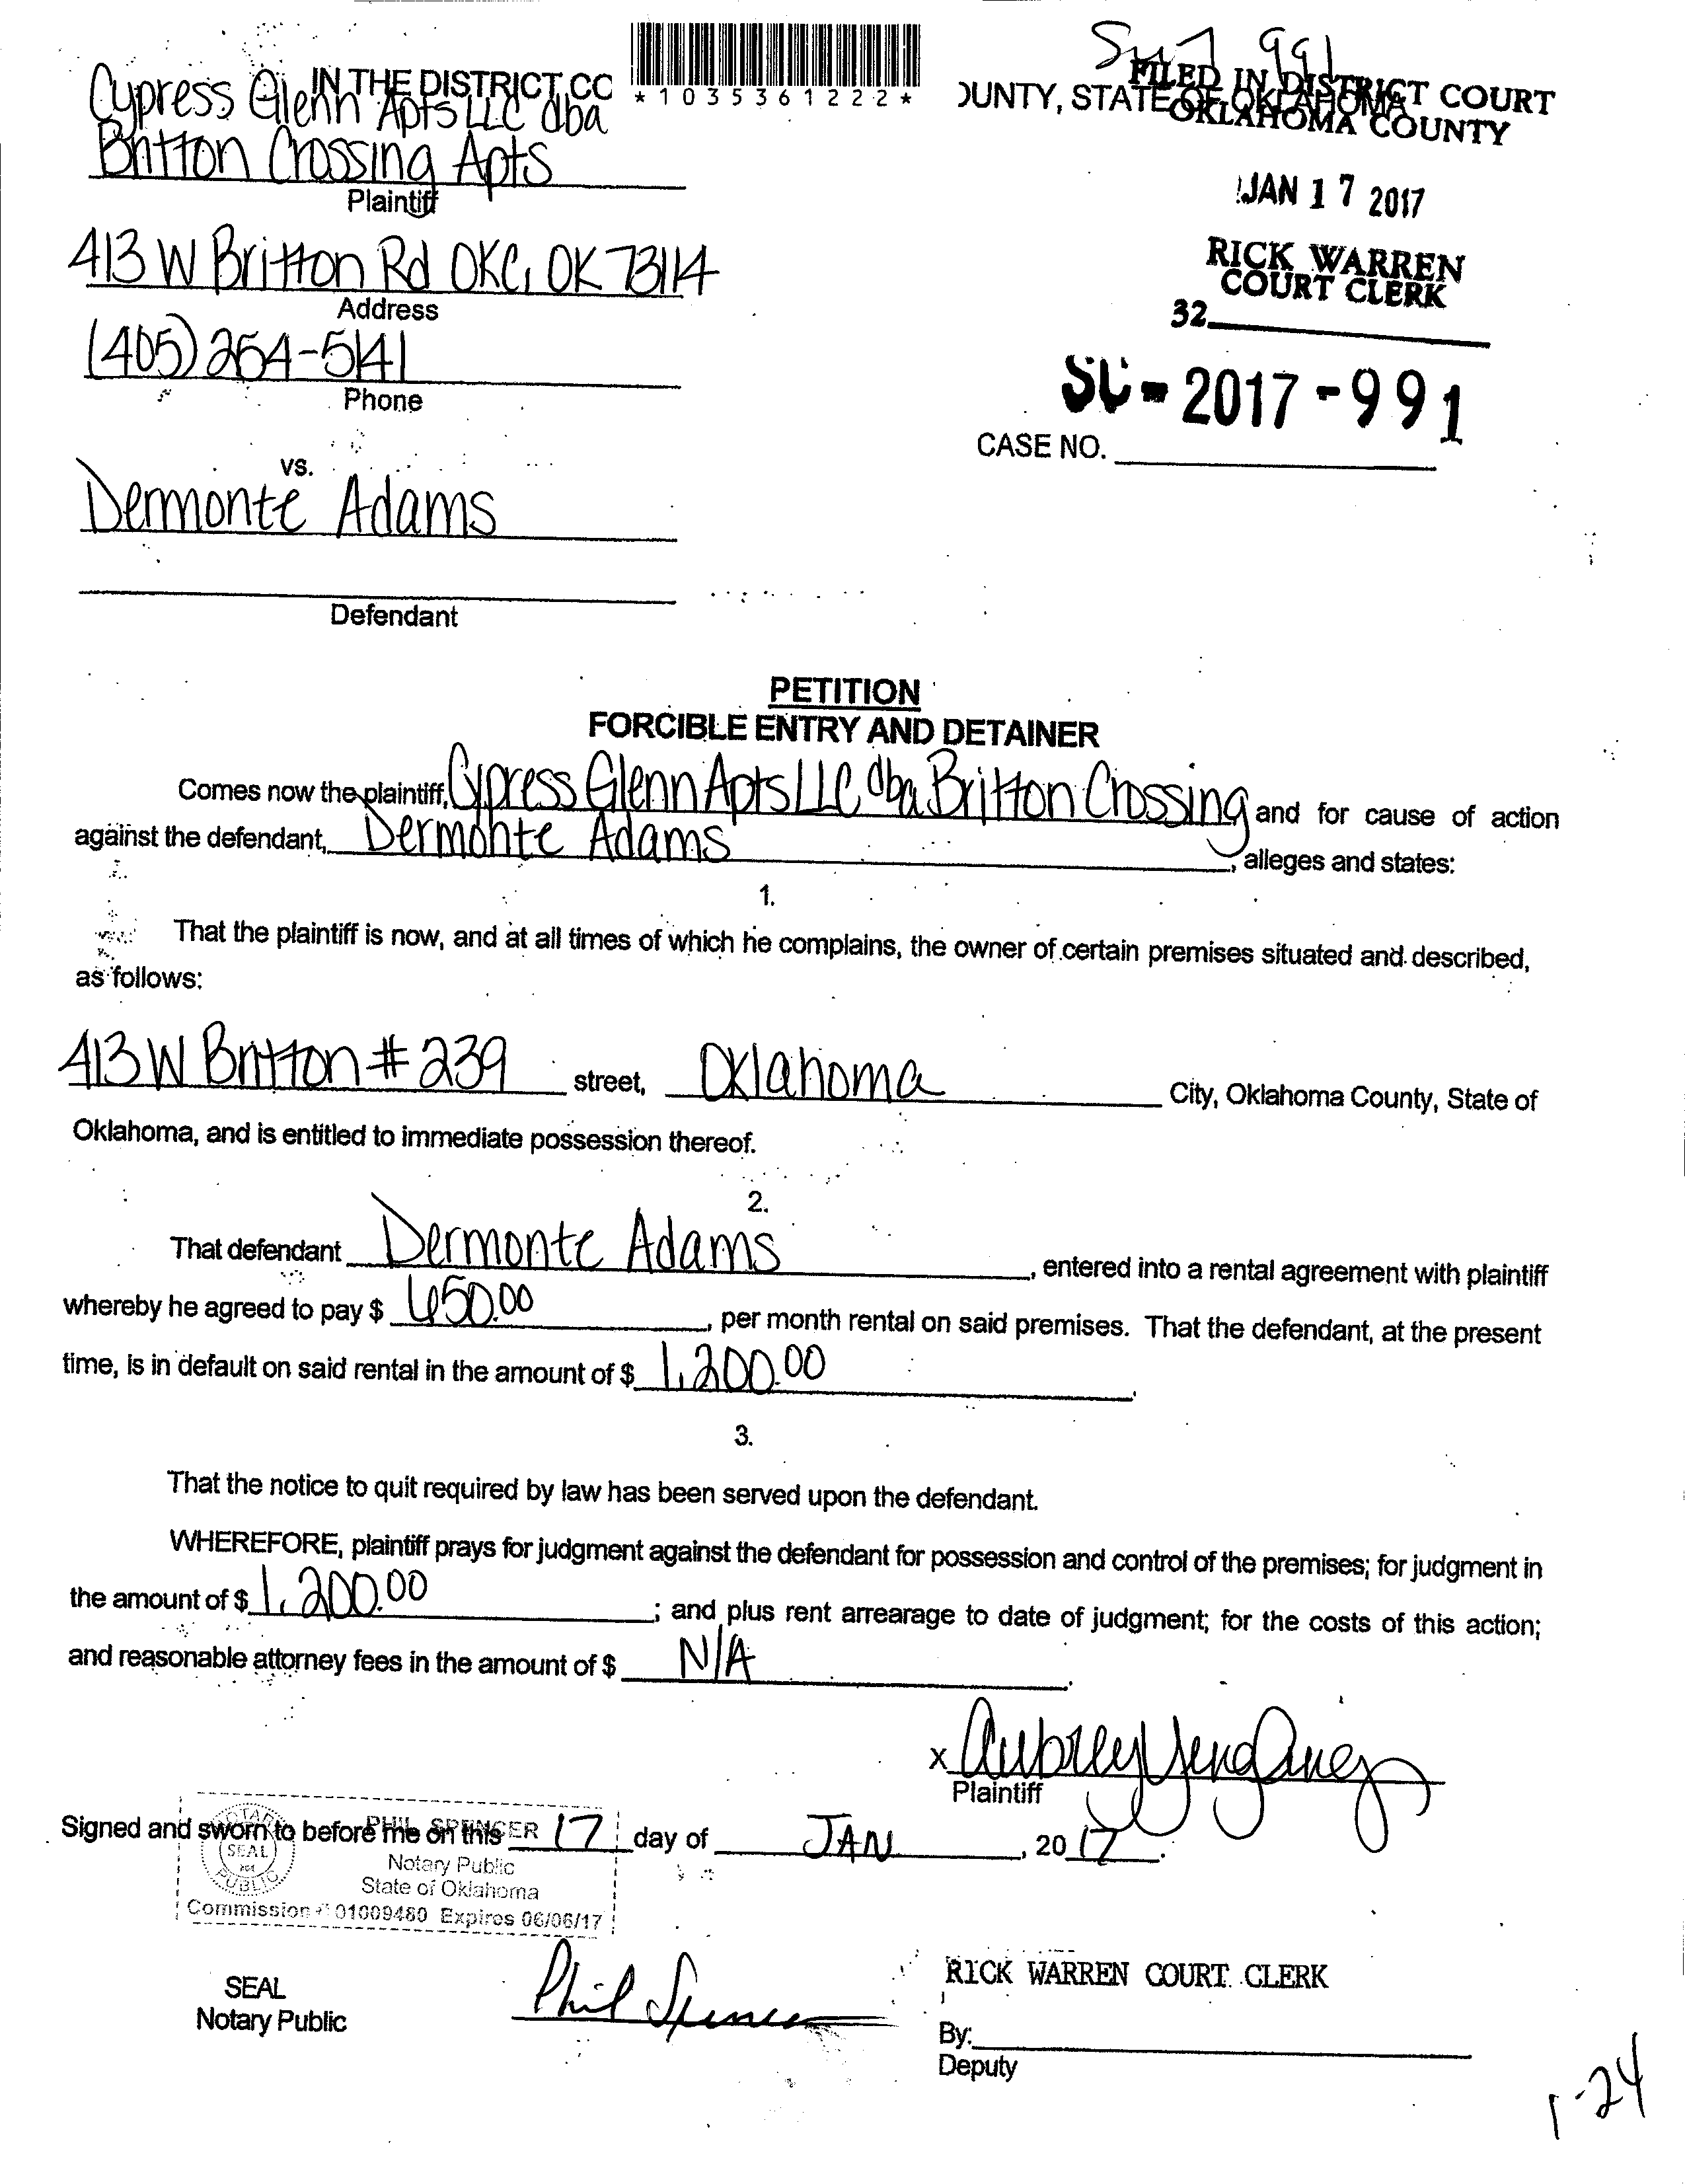 Sm7 991
IN THE DISTRICT CO
*1035361222*
OUNTY, STATE OF OKLAHOMA
FILED IN DISTRICT COURT
OKLAHOMA COUNTY
Cypress Glenn Apts LLC dba
Britton Crossing Apts
Plaintiff
JAN 17 2017
413 W Britton Rd OKC, OK 73114
Address
RICK WARREN
COURT CLERK
32
(405) 254-5141
Phone
SC-2017-991
CASE NO.
vs.
Dermonte Adams
Defendant
PETITION
FORCIBLE ENTRY AND DETAINER
Comes now the plaintiff, Cypress Glenn Apts LLC dba Britton Crossing and for cause of action
against the defendant, Dermonte Adams, alleges and states:
1.
That the plaintiff is now, and at all times of which he complains, the owner of certain premises situated and described,
as follows:
413 W Britton # 239 street, Oklahoma City, Oklahoma County, State of
Oklahoma, and is entitled to immediate possession thereof.
2.
That defendant Dermonte Adams, entered into a rental agreement with plaintiff
whereby he agreed to pay $ 650.00, per month rental on said premises. That the defendant, at the present
time, is in default on said rental in the amount of $ 1,200.00.
3.
That the notice to quit required by law has been served upon the defendant.
WHEREFORE, plaintiff prays for judgment against the defendant for possession and control of the premises; for judgment in
the amount of $ 1,200.00; and plus rent arrearage to date of judgment; for the costs of this action;
and reasonable attorney fees in the amount of $ N/A.
x Aubrey
Plaintiff
Signed and sworn to before me on this 17 day of JAN, 2017.
NOTARY
SEAL
PUBLIC
PHIL SPENCER
Notary Public
State of Oklahoma
Commission # 01009480 Expires 06/06/17
SEAL
Notary Public
Phil Spencer
RICK WARREN COURT CLERK
By:
Deputy
1-24